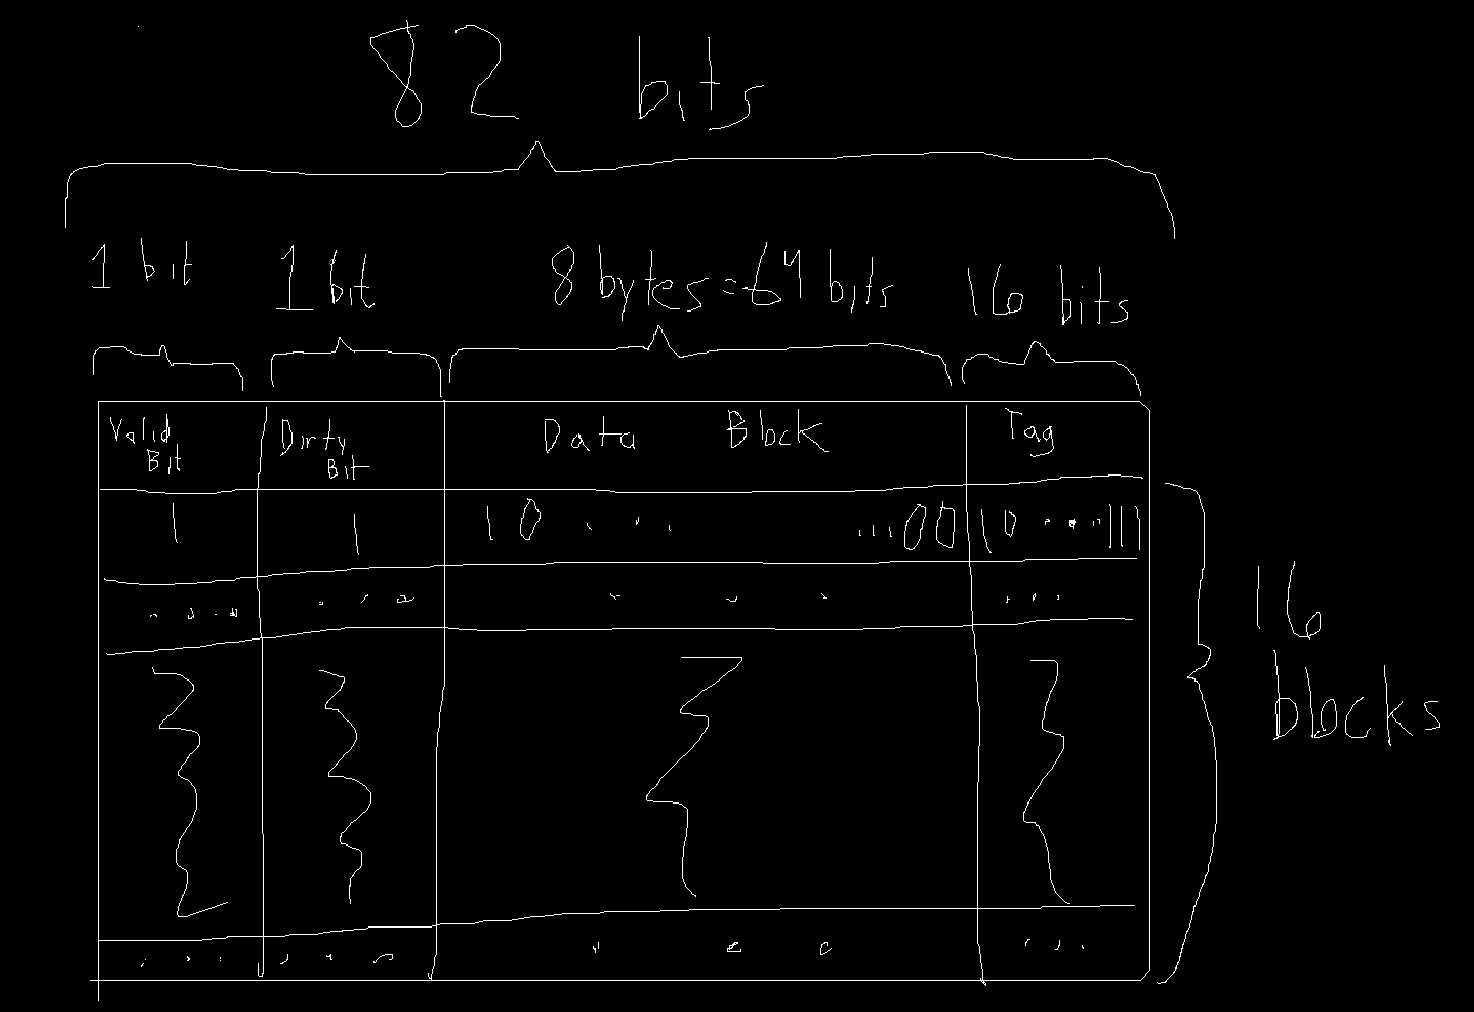 82 bits
1 bit 1 bit 8 bytes = 64 bits 16 bits
Valid Bit Dirty Bit Data Block Tag
1 1 10 ... ...00 10...111
... ... ... ...
16 blocks
... ... ... ...